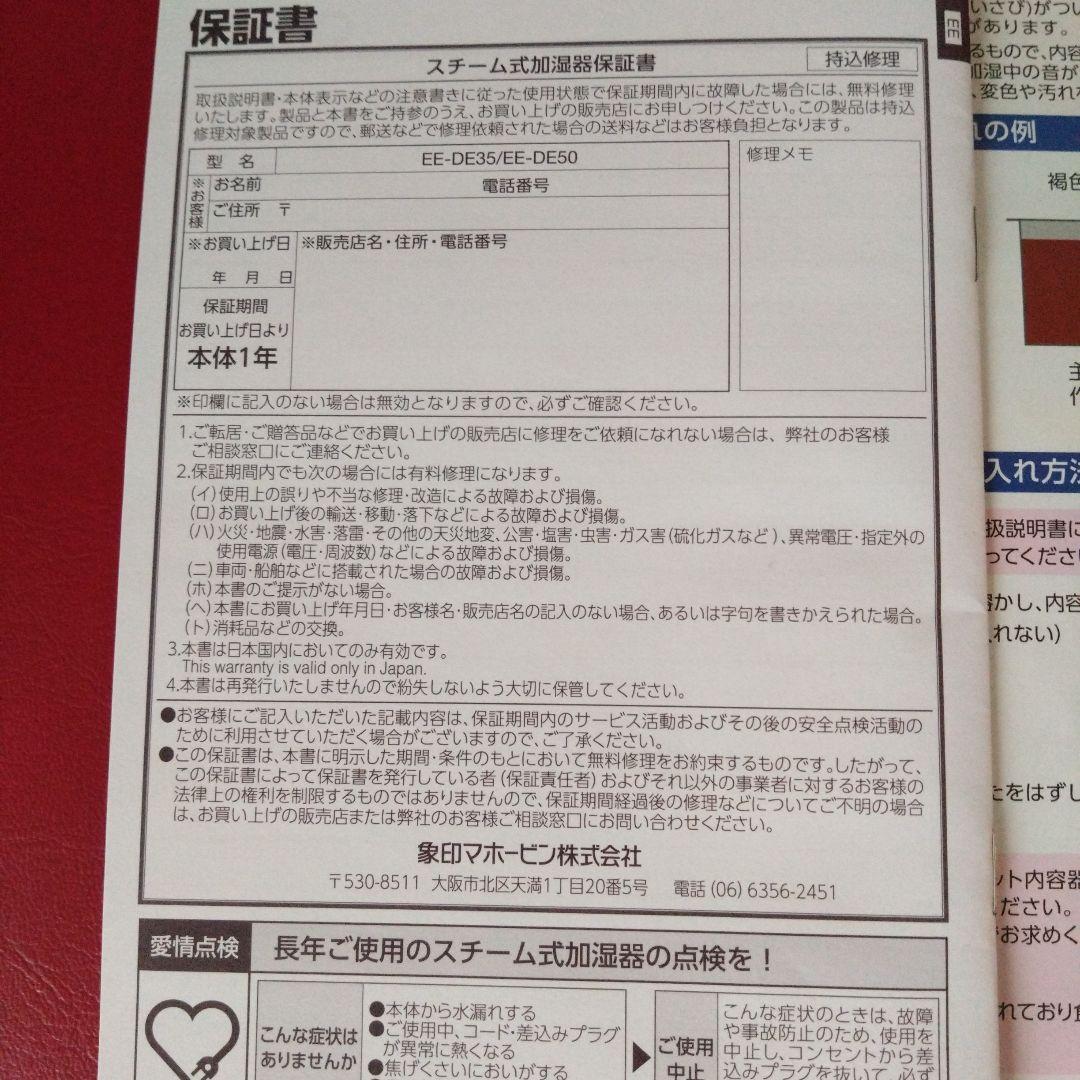 保証書
スチーム式加湿器保証書
持込修理
取扱説明書・本体表示などの注意書きに従った使用状態で保証期間内に故障した場合には、無料修理
いたします。製品と本書をご持参のうえ、お買い上げの販売店にお申しつけください。この製品は持込
修理対象製品ですので、郵送などで修理依頼された場合の送料などはお客様負担となります。
型 名
EE-DE35/EE-DE50
修理メモ
※お客様
お名前
電話番号
ご住所 〒
※お買い上げ日
※販売店名・住所・電話番号
年 月 日
保証期間
お買い上げ日より
本体1年
※印欄に記入のない場合は無効となりますので、必ずご確認ください。
1.ご転居・ご贈答品などでお買い上げの販売店に修理をご依頼になれない場合は、弊社のお客様
ご相談窓口にご連絡ください。
2.保証期間内でも次の場合には有料修理になります。
(イ)使用上の誤りや不当な修理・改造による故障および損傷。
(ロ)お買い上げ後の輸送・移動・落下などによる故障および損傷。
(ハ)火災・地震・水害・落雷・その他の天災地変、公害・塩害・虫害・ガス害(硫化ガスなど)、異常電圧・指定外の
使用電源(電圧・周波数)などによる故障および損傷。
(ニ)車両・船舶などに搭載された場合の故障および損傷。
(ホ)本書のご提示がない場合。
(ヘ)本書にお買い上げ年月日・お客様名・販売店名の記入のない場合、あるいは字句を書きかえられた場合。
(ト)消耗品などの交換。
3.本書は日本国内においてのみ有効です。
This warranty is valid only in Japan.
4.本書は再発行いたしませんので紛失しないよう大切に保管してください。
●お客様にご記入いただいた記載内容は、保証期間内のサービス活動およびその後の安全点検活動の
ために利用させていただく場合がございますので、ご了承ください。
●この保証書は、本書に明示した期間・条件のもとにおいて無料修理をお約束するものです。したがって、
この保証書によって保証書を発行している者(保証責任者)およびそれ以外の事業者に対するお客様の
法律上の権利を制限するものではありませんので、保証期間経過後の修理などについてご不明の場合
は、お買い上げの販売店または弊社のお客様ご相談窓口にお問い合わせください。
象印マホービン株式会社
〒530-8511 大阪市北区天満1丁目20番5号 電話(06)6356-2451
愛情点検
長年ご使用のスチーム式加湿器の点検を!
こんな症状は
ありませんか
●本体から水漏れする
●ご使用中、コード・差込みプラグ
が異常に熱くなる
●焦げくさいにおいがする
ご使用
中止
こんな症状のときは、故障
や事故防止のため、使用を
中止し、コンセントから差
込みプラグを抜いて、必ず
EE
いさび)がつい
があります。
るもので、内容
加湿中の音が
、変色や汚れな
れの例
褐色
入れ方法
扱説明書に
ってください
溶かし、内容
れない)
たをはずし
ット内容器
ださい。
でお求めく
れており食